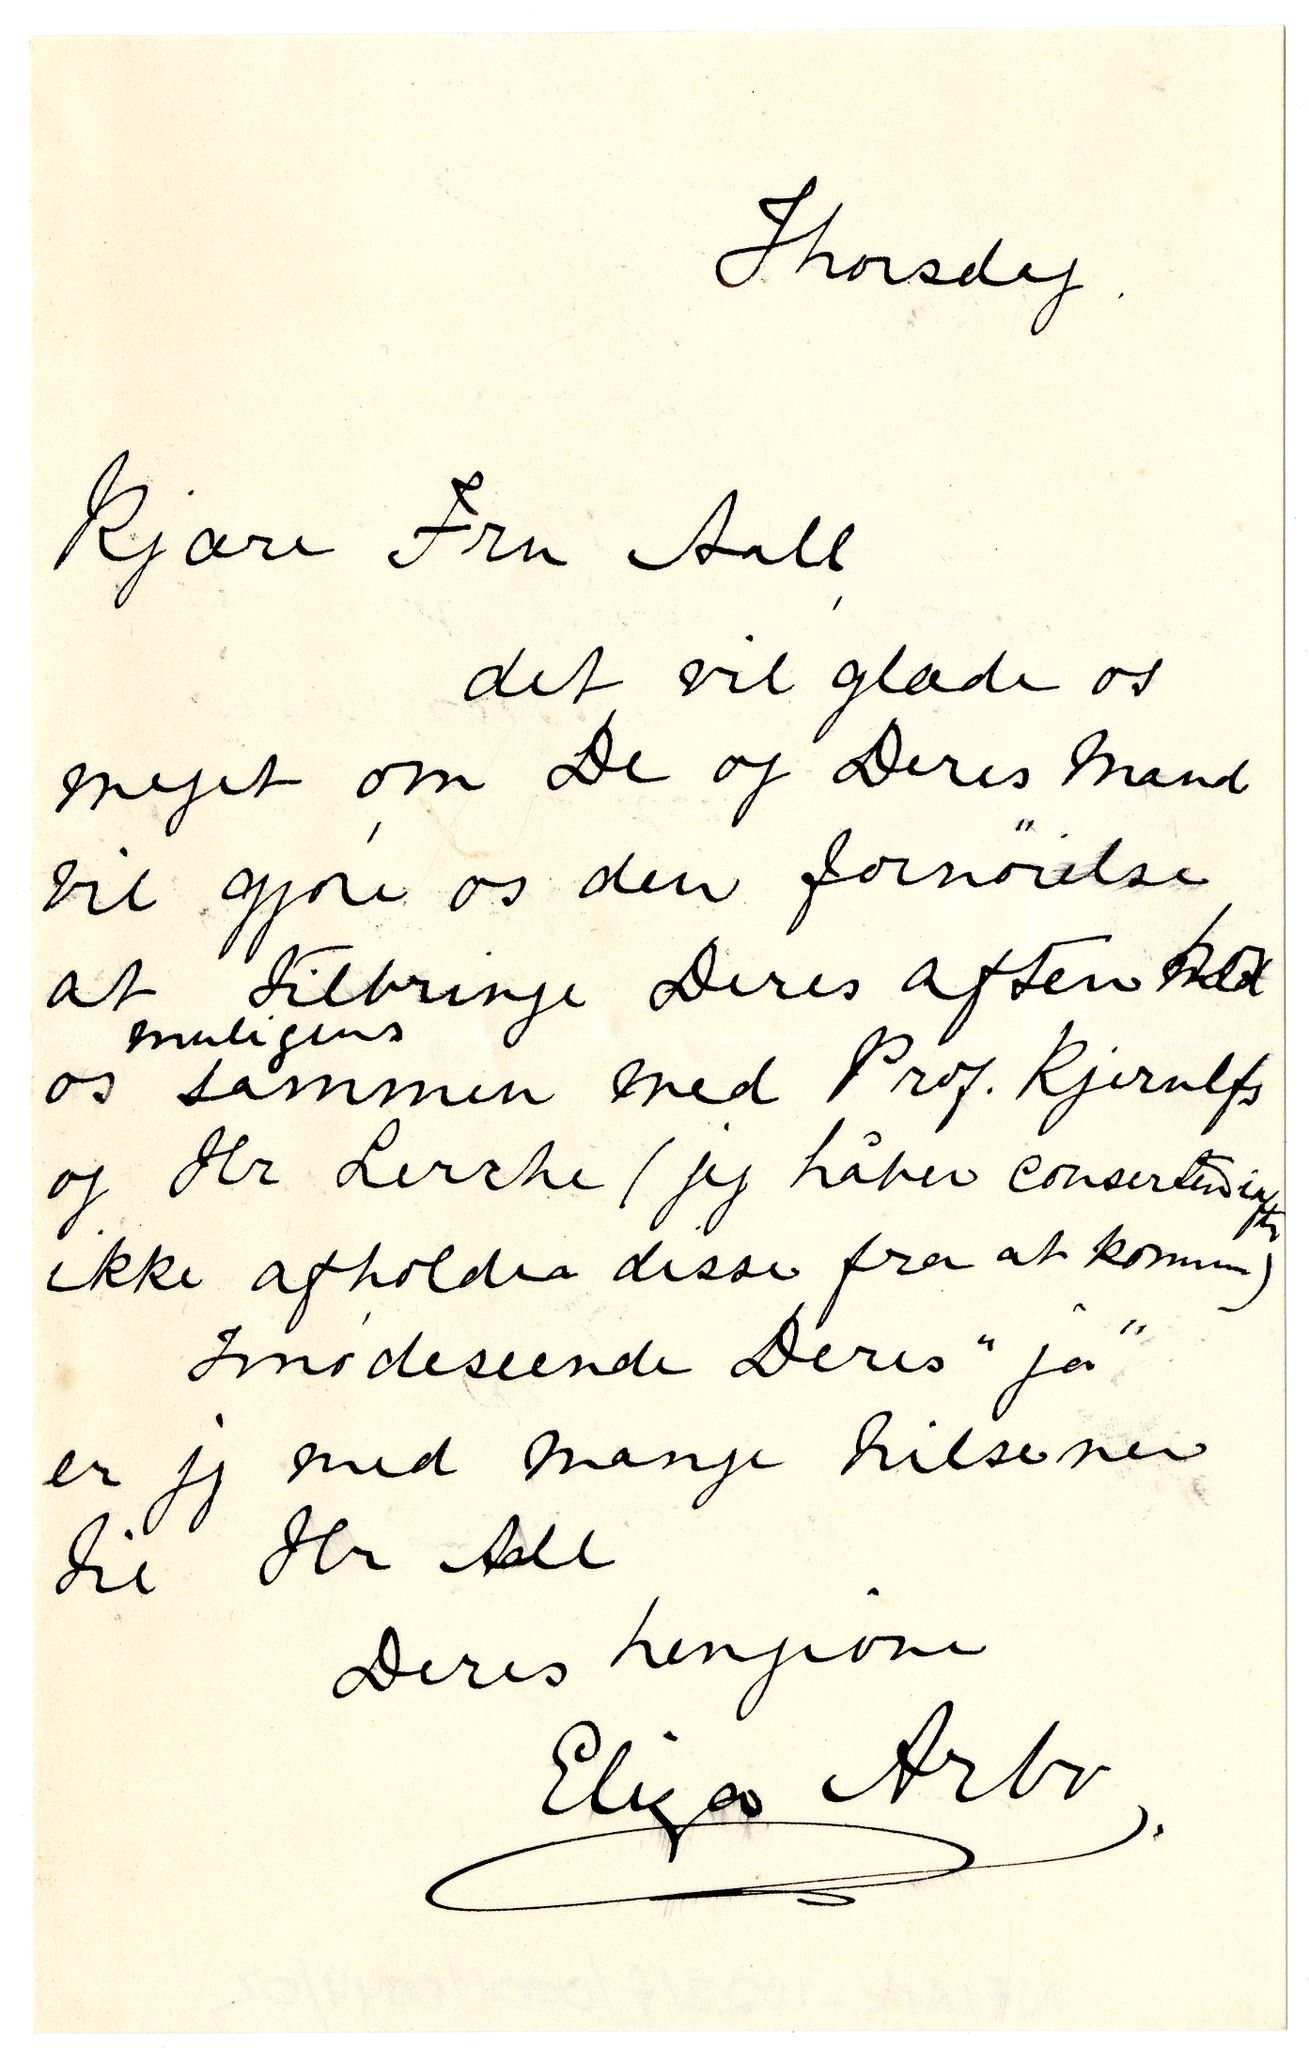 Thorsdag.
Kjære Fru Aall,
det vil glæde os
meget om De og Deres Mand
vil gjöre os den fornöielse
at tilbringe Deres aften hos
muligens
os sammen med Prof. Kjerulfs
og Hr Lerche (jeg håber conserten i aften
ikke afholder disse fra at komme)
Imödeseende Deres "ja"
er jeg med mange hilsener
til Hr Aall
Deres hengivne
Eliza Arbo.